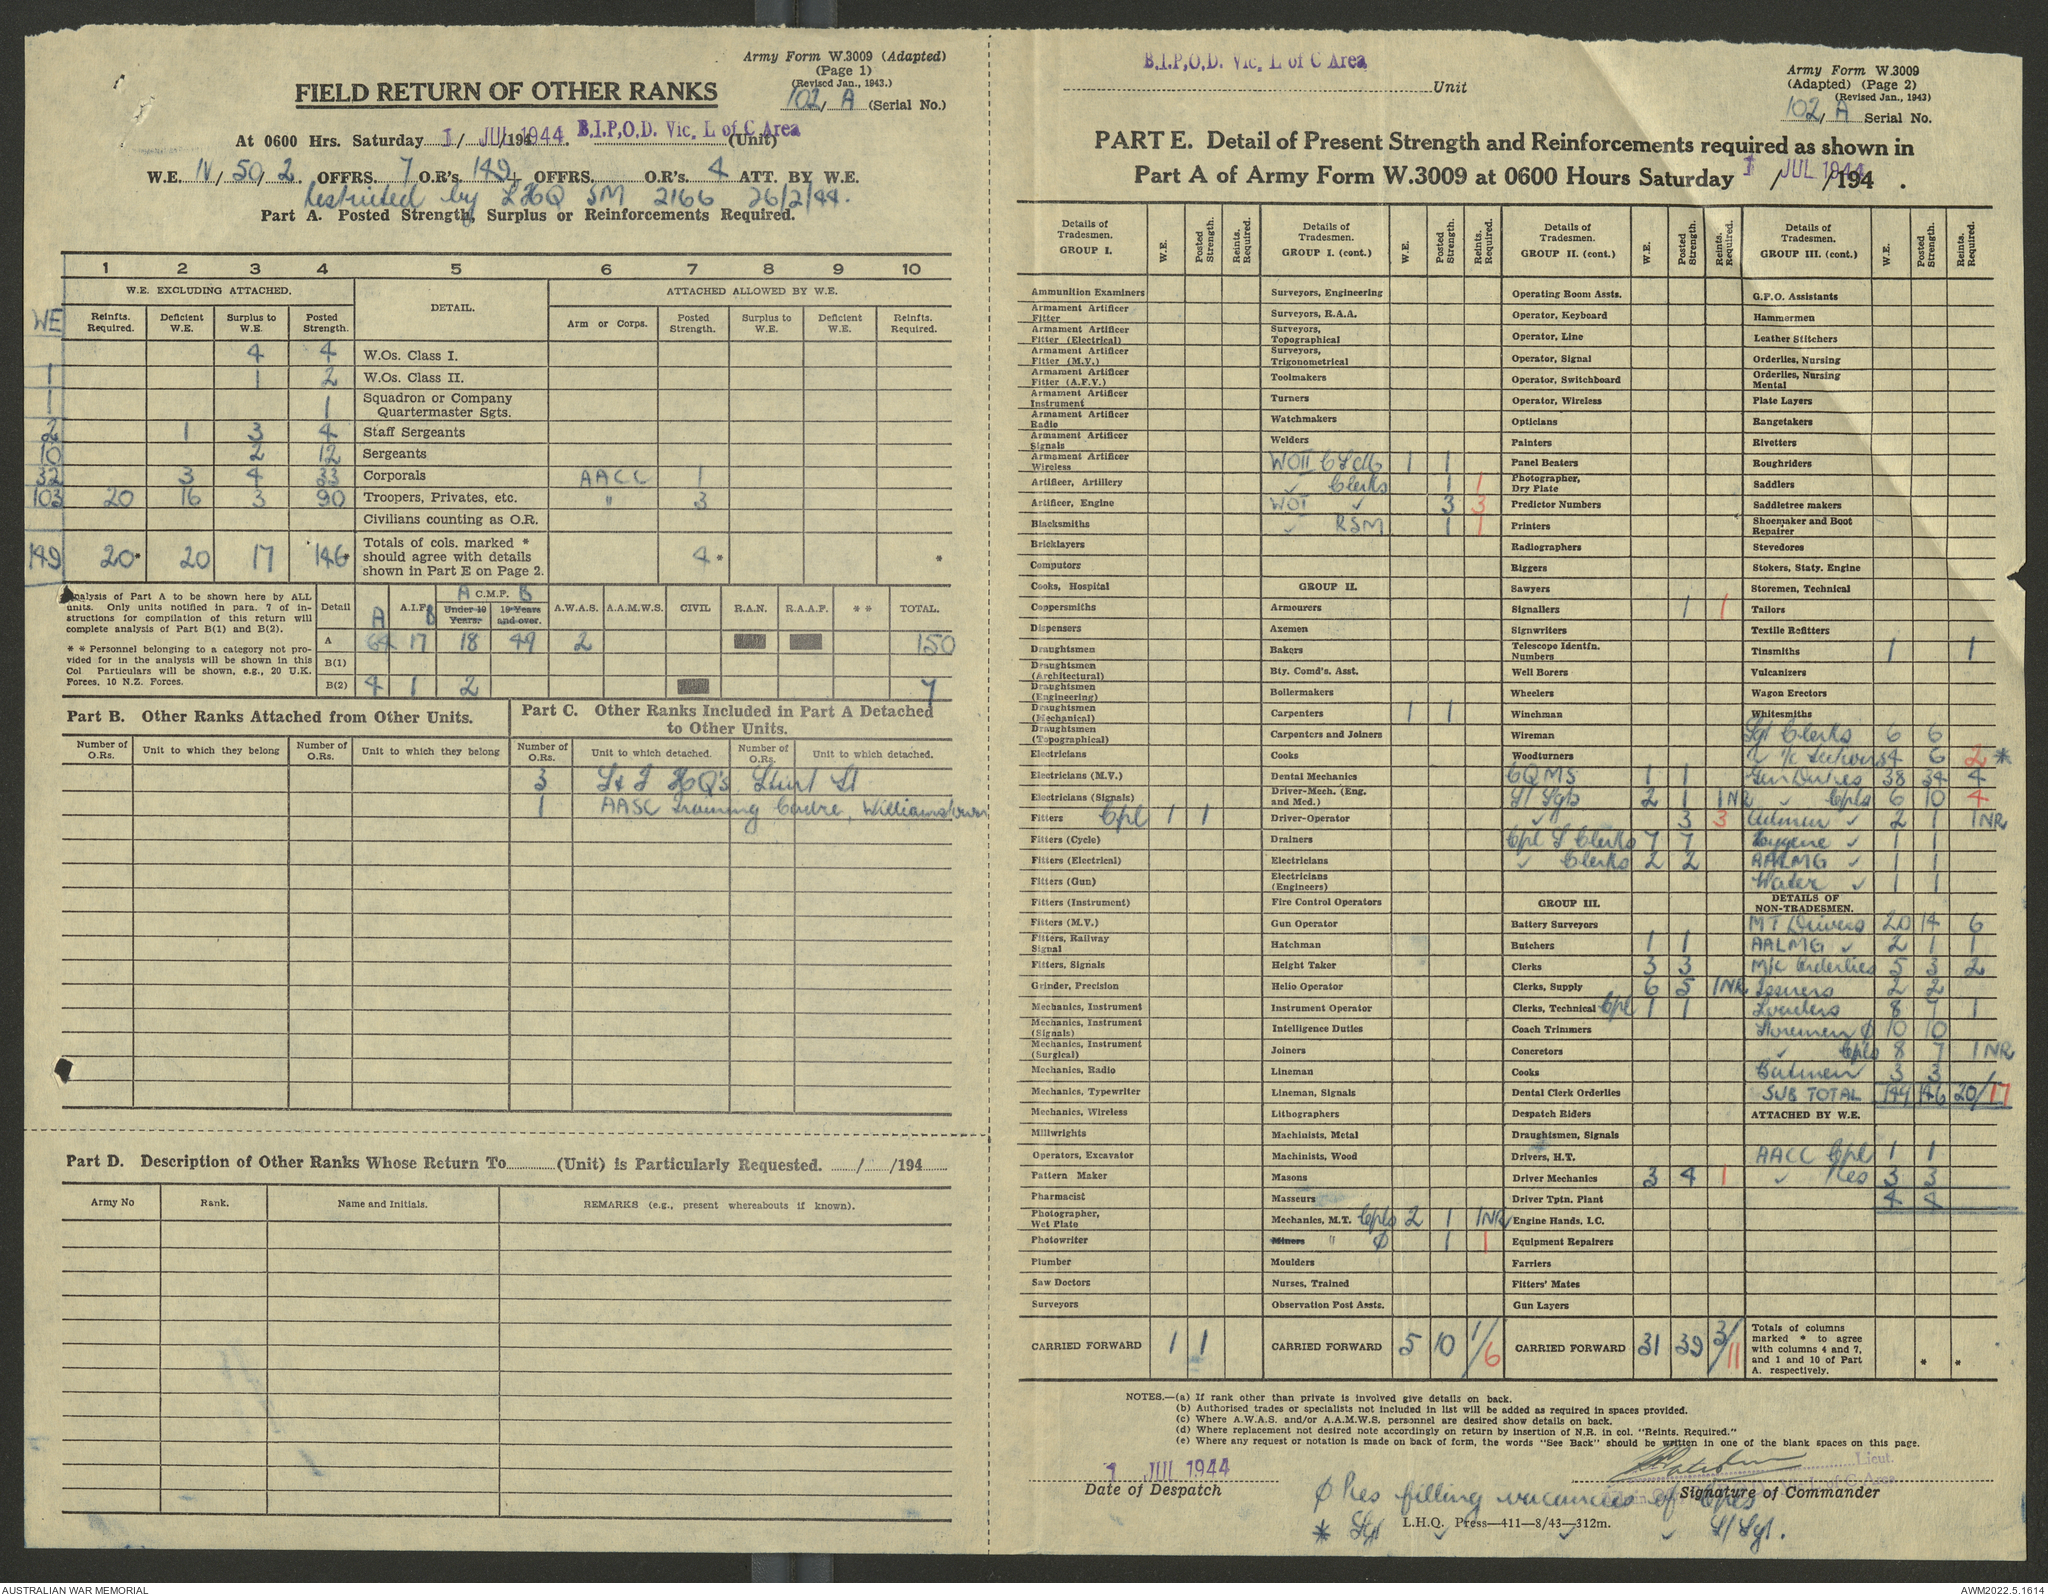 Army Form W.3009 (Adapted)
(Page 1)
(Revised Jan., 1943.)
FIELD RETURN OF OTHER RANKS
102, A (Serial No.)
At 0600 Hrs. Saturday 1 / JUL /194 1944. B.I.P.O.D. Vic. L of C Area (Unit)
W.E. IV / 50 / 2. OFFRS. 7 O.R's. 149 + OFFRS. O.R's. 4 ATT. BY W.E.
restricted by LHQ SM 2166 26/2/44.
Part A. Posted Strength, Surplus or Reinforcements Required.
1 2 3 4 5 6 7 8 9 10
W.E. EXCLUDING ATTACHED. DETAIL. ATTACHED ALLOWED BY W.E.
WE Reinfts. Required. Deficient W.E. Surplus to W.E. Posted Strength. Arm or Corps. Posted Strength. Surplus to W.E. Deficient W.E. Reinfts. Required.
4 4 W.Os. Class I.
1 1 2 W.Os. Class II.
1 1 Squadron or Company Quartermaster Sgts.
2 1 3 4 Staff Sergeants
10 2 12 Sergeants
32 3 4 33 Corporals AACC 1
103 20 16 3 90 Troopers, Privates, etc. " 3
Civilians counting as O.R.
149 20* 20 17 146* Totals of cols. marked * should agree with details shown in Part E on Page 2. 4* *
Analysis of Part A to be shown here by ALL units. Only units notified in para. 7 of instructions for compilation of this return will complete analysis of Part B(1) and B(2).
* * Personnel belonging to a category not provided for in the analysis will be shown in this Col Particulars will be shown, e.g., 20 U.K. Forces, 10 N.Z. Forces.
Detail A A.I.F. B A C.M.F. B Under 19 Years. 19 Years and over. A.W.A.S. A.A.M.W.S. CIVIL R.A.N. R.A.A.F. * * TOTAL.
A 64 17 18 49 2 150
B(1)
B(2) 4 1 2 7
Part B. Other Ranks Attached from Other Units.
Part C. Other Ranks Included in Part A Detached to Other Units.
Number of O.Rs. Unit to which they belong Number of O.Rs. Unit to which they belong Number of O.Rs. Unit to which detached. Number of O.Rs. Unit to which detached.
3 HQ's Sturt St
1 AASC Training Cadre, Williamstown
Part D. Description of Other Ranks Whose Return To (Unit) is Particularly Requested. / /194
Army No Rank. Name and Initials. REMARKS (e.g., present whereabouts if known).
B.I.P.O.D. Vic. L of C Area
Unit
Army Form W.3009
(Adapted) (Page 2)
(Revised Jan., 1943)
102, A Serial No.
PART E. Detail of Present Strength and Reinforcements required as shown in
Part A of Army Form W.3009 at 0600 Hours Saturday 1 / JUL 1944 /194 .
Details of Tradesmen. GROUP I. W.E. Posted Strength. Reints. Required.
Ammunition Examiners
Armament Artificer Fitter
Armament Artificer Fitter (Electrical)
Armament Artificer Fitter (M.V.)
Armament Artificer Fitter (A.F.V.)
Armament Artificer Instrument
Armament Artificer Radio
Armament Artificer Signals
Armament Artificer Wireless
Artificer, Artillery
Artificer, Engine
Blacksmiths
Bricklayers
Computors
Cooks, Hospital
Coppersmiths
Dispensers
Draughtsmen
Draughtsmen (Architectural)
Draughtsmen (Engineering)
Draughtsmen (Mechanical)
Draughtsmen (Topographical)
Electricians
Electricians (M.V.)
Electricians (Signals)
Fitters Cpl 1 1
Fitters (Cycle)
Fitters (Electrical)
Fitters (Gun)
Fitters (Instrument)
Fitters (M.V.)
Fitters, Railway Signal
Fitters, Signals
Grinder, Precision
Mechanics, Instrument
Mechanics, Instrument (Signals)
Mechanics, Instrument (Surgical)
Mechanics, Radio
Mechanics, Typewriter
Mechanics, Wireless
Millwrights
Operators, Excavator
Pattern Maker
Pharmacist
Photographer, Wet Plate
Photowriter
Plumber
Saw Doctors
Surveyors
CARRIED FORWARD 1 1
Details of Tradesmen. GROUP I. (cont.) W.E. Posted Strength. Reints. Required.
Surveyors, Engineering
Surveyors, R.A.A.
Surveyors, Topographical
Surveyors, Trigonometrical
Toolmakers
Turners
Watchmakers
Welders
WOII 1 1
✓ Clerks 1 1
WOI ✓ 3 3
✓ RSM 1 1
GROUP II.
Armourers
Axemen
Bakers
Bty. Comd's. Asst.
Boilermakers
Carpenters 1 1
Carpenters and Joiners
Cooks
Dental Mechanics
Driver-Mech. (Eng. and Med.)
Driver-Operator
Drainers
Electricians
Electricians (Engineers)
Fire Control Operators
Gun Operator
Hatchman
Height Taker
Helio Operator
Instrument Operator
Intelligence Duties
Joiners
Lineman
Lineman, Signals
Lithographers
Machinists, Metal
Machinists, Wood
Masons
Masseurs
Mechanics, M.T. Cpls 2 1 1NR
Miners " ø 1 1
Moulders
Nurses, Trained
Observation Post Assts.
CARRIED FORWARD 5 10 1/6
Details of Tradesmen. GROUP II. (cont.) W.E. Posted Strength. Reints. Required.
Operating Room Assts.
Operator, Keyboard
Operator, Line
Operator, Signal
Operator, Switchboard
Operator, Wireless
Opticians
Painters
Panel Beaters
Photographer, Dry Plate
Predictor Numbers
Printers
Radiographers
Riggers
Sawyers
Signallers 1 1
Signwriters
Telescope Identfn. Numbers
Well Borers
Wheelers
Winchman
Wireman
Woodturners
CQMS 1 1
S/ Sgts 2 1 1NR
✓ 3 3
Cpl S Clerks 7 7
✓ Clerks 2 2
GROUP III.
Battery Surveyors
Butchers 1 1
Clerks 3 3
Clerks, Supply 6 5 1NR
Clerks, Technical Cpl 1 1
Coach Trimmers
Concretors
Cooks
Dental Clerk Orderlies
Despatch Riders
Draughtsmen, Signals
Drivers, H.T.
Driver Mechanics 3 4 1
Driver Tptn. Plant
Engine Hands, I.C.
Equipment Repairers
Farriers
Fitters' Mates
Gun Layers
CARRIED FORWARD 31 39 3/11
Details of Tradesmen. GROUP III. (cont.) W.E. Posted Strength. Reints. Required.
G.P.O. Assistants
Hammermen
Leather Stitchers
Orderlies, Nursing
Orderlies, Nursing Mental
Plate Layers
Rangetakers
Rivetters
Roughriders
Saddlers
Saddletree makers
Shoemaker and Boot Repairer
Stevedores
Stokers, Staty. Engine
Storemen, Technical
Tailors
Textile Refitters
Tinsmiths 1 1
Vulcanizers
Wagon Erectors
Whitesmiths
Sgt Clerks 6 6
✓ i/c Sections 4 6 2 *
Gen Duties 38 34 4
✓ Cpls 6 10 4
✓ 2 1 1NR
Hygiene ✓ 1 1
AALMG ✓ 1 1
Water ✓ 1 1
DETAILS OF NON-TRADESMEN.
MT Drivers 20 14 6
AALMG ✓ 2 1 1
Orderlies 5 3 2
Issuers 2 2
Loaders 8 7 1
Storemen ø 10 10
✓ Cpls 8 7 1NR
Batmen 3 3
SUB TOTAL 149 146 20/17
ATTACHED BY W.E.
AACC Cpl 1 1
✓ Ptes 3 3
4 4
Totals of columns marked * to agree with columns 4 and 7, and 1 and 10 of Part A. respectively. * *
NOTES.—(a) If rank other than private is involved give details on back.
(b) Authorised trades or specialists not included in list will be added as required in spaces provided.
(c) Where A.W.A.S. and/or A.A.M.W.S. personnel are desired show details on back.
(d) Where replacement not desired note accordingly on return by insertion of N.R. in col. "Reints. Required."
(e) Where any request or notation is made on back of form, the words "See Back" should be written in one of the blank spaces on this page.
1 JUL 1944
Date of Despatch
Lieut.
L of C Area
Signature of Commander
ø Ptes filling vacancies of Cpls
* Sgt ✓ ✓ ✓ S/ Sgt.
L.H.Q. Press—411—8/43—312m.
AUSTRALIAN WAR MEMORIAL
AWM2022.5.1614